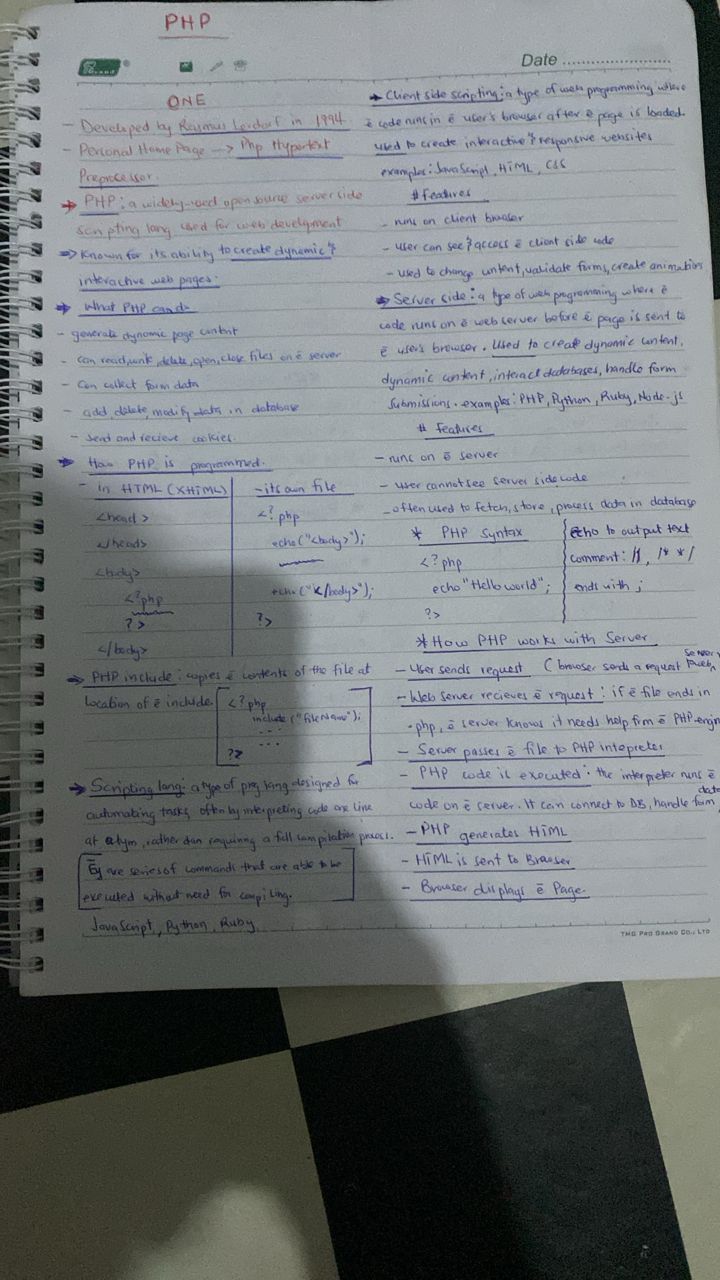 PHP
Date
ONE
- Developed by Rasmus Lerdorf in 1994
- Personal Home Page → Php Hypertext
Preprocessor.
→ PHP: a widely-used open source server side
scripting lang used for web develpment
=> Known for its ability to create dynamic &
interactive web pages.
→ What PHP can do
- generate dynamic page content
- can read, write, delete, open, close files on ē server
- Can collect form data
- add, delete, modify data in database
- send and recieve cookies.
→ How PHP is programmed.
- in HTML (XHTML)
<head>
</head>
<body>
<?php
?>
</body>
- its own file
<?php
echo("<body>");
echo("</body>");
?>
→ PHP include: copies ē contents of the file at
location of ē include.
<?php
include ("fileName");
...
...
?>
→ Scripting lang: a type of prog lang designed for
automating tasks, often by interpreting code one line
at a tym, rather dan requiring a full compilation process.
Ēy are series of commands that are able to be
executed without need for compiling.
JavaScript, Python, Ruby
→ Client side scripting: a type of web programming where
ē code runs in ē user's browser after ē page is loaded
used to create interactive & responsive websites
examples: JavaScript, HTML, CSS
# features
- runs on client browser
- user can see & access ē client side code
- used to change content, validate forms, create animation
→ Server side: a type of web programming where ē
code runs on ē web server before ē page is sent to
ē user's browser. Used to create dynamic content,
dynamic content, interact databases, handle form
submissions. examples: PHP, Python, Ruby, Node.js
# features
- runs on ē server
- user cannot see server side code
- often used to fetch, store, process data in database
* PHP syntax
<?php
echo "Hello world";
?>
echo to output text
comment: //, /* */
ends with ;
* How PHP works with Server
- User sends request (browser sends a request
- Web server recieves ē request: if ē file ends in
.php, ē server knows it needs help from ē PHP engin
- Server passes ē file to PHP intepreter
- PHP code is executed: the interpreter runs ē
code on ē server. It can connect to DB, handle form data
- PHP generates HTML
- HTML is sent to Browser
- Browser displays ē Page.
TMG PRO GRAND CO., LTD